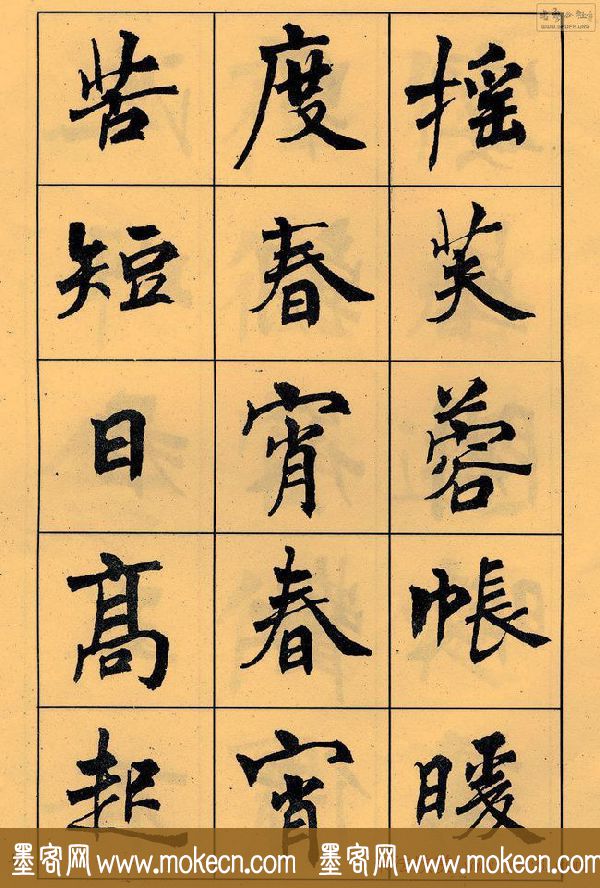 摇芙蓉帳暖
度春宵春宵
苦短日髙起
墨客网 www.mokecn.com 墨客网 www.mokecn.com